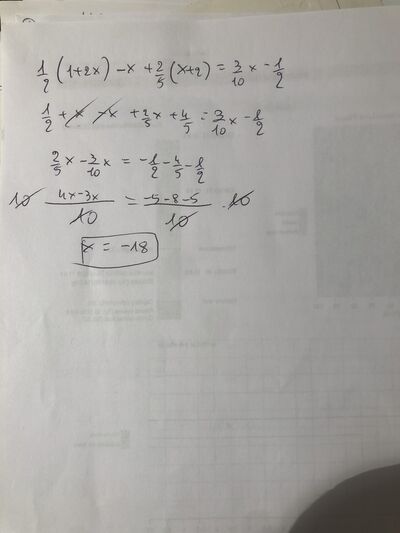 1/2 (1+2x) - x + 2/5 (x+2) = 3/10 x - 1/2
1/2 + x - x + 2/5 x + 4/5 = 3/10 x - 1/2
2/5 x - 3/10 x = - 1/2 - 4/5 - 1/2
10 (4x-3x)/10 = (-5-8-5)/10 · 10
x = -18